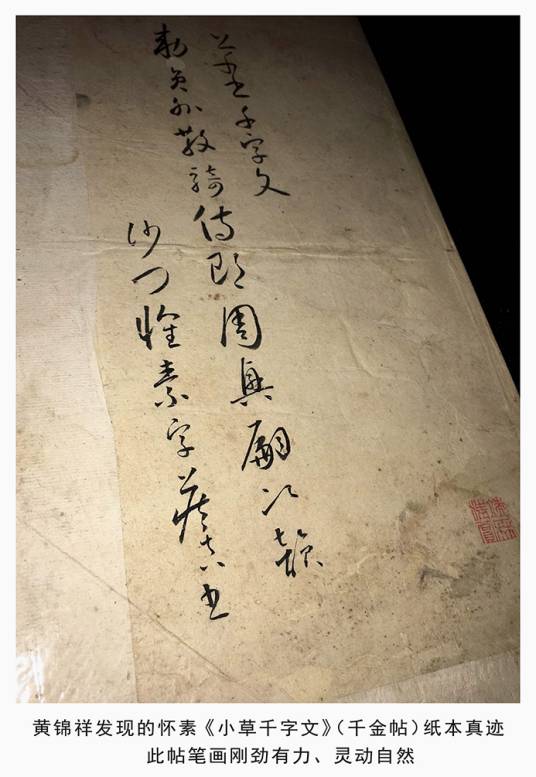 草書千字文
勑員外散騎侍郎周興嗣次韻
沙門懷素字藏真書
黄锦祥发现的怀素《小草千字文》（千金帖）纸本真迹
此帖笔画刚劲有力、灵动自然